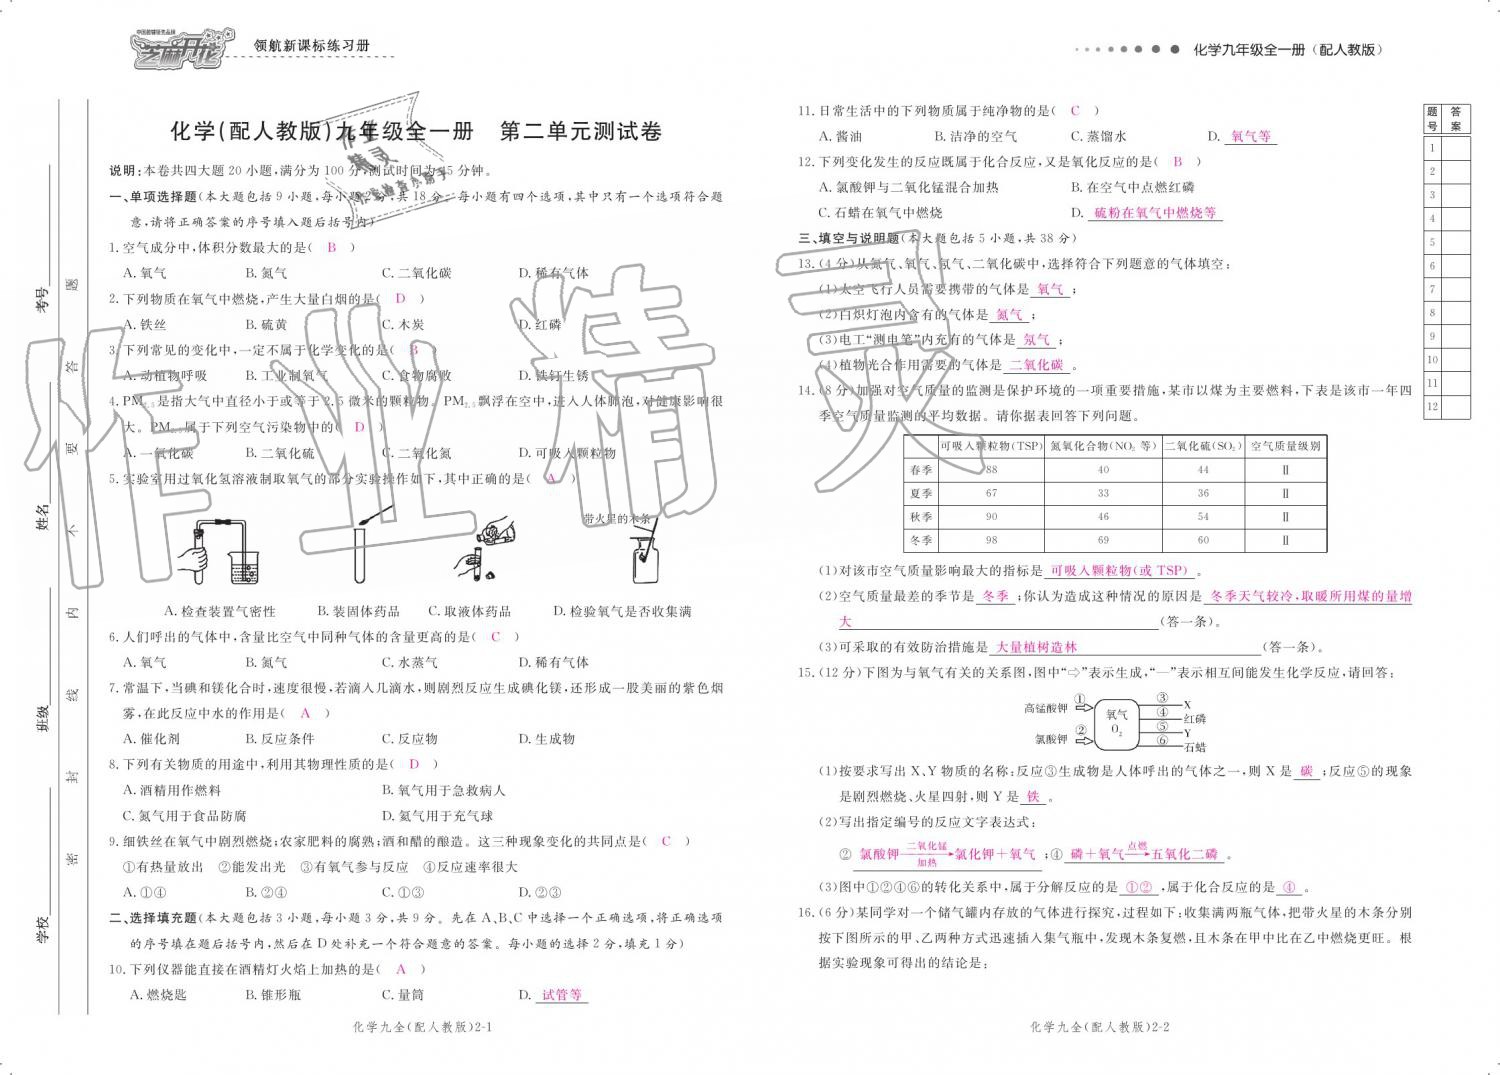 中国教辅领先品牌
芝麻开花
领航新课标练习册
化学九年级全一册（配人教版）
化学(配人教版)九年级全一册　第二单元测试卷
说明:本卷共四大题 20 小题,满分为 100 分,测试时间为45分钟。
一、单项选择题(本大题包括 9 小题,每小题2分,共 18 分。每小题有四个选项,其中只有一个选项符合题
意,请将正确答案的序号填入题后括号内)
1.空气成分中,体积分数最大的是( B )
A.氧气 B.氮气 C.二氧化碳 D.稀有气体
2.下列物质在氧气中燃烧,产生大量白烟的是( D )
A.铁丝 B.硫黄 C.木炭 D.红磷
3.下列常见的变化中,一定不属于化学变化的是( B )
A.动植物呼吸 B.工业制氧气 C.食物腐败 D.铁钉生锈
4.PM2.5是指大气中直径小于或等于 2.5 微米的颗粒物。PM2.5飘浮在空中,进入人体肺泡,对健康影响很
大。PM2.5属于下列空气污染物中的( D )
A.一氧化碳 B.二氧化硫 C.二氧化氮 D.可吸入颗粒物
5.实验室用过氧化氢溶液制取氧气的部分实验操作如下,其中正确的是( A )
带火星的木条
A.检查装置气密性 B.装固体药品 C.取液体药品 D.检验氧气是否收集满
6.人们呼出的气体中,含量比空气中同种气体的含量更高的是( C )
A.氧气 B.氮气 C.水蒸气 D.稀有气体
7.常温下,当碘和镁化合时,速度很慢,若滴入几滴水,则剧烈反应生成碘化镁,还形成一股美丽的紫色烟
雾,在此反应中水的作用是( A )
A.催化剂 B.反应条件 C.反应物 D.生成物
8.下列有关物质的用途中,利用其物理性质的是( D )
A.酒精用作燃料 B.氧气用于急救病人
C.氮气用于食品防腐 D.氦气用于充气球
9.细铁丝在氧气中剧烈燃烧;农家肥料的腐熟;酒和醋的酿造。这三种现象变化的共同点是( C )
①有热量放出 ②能发出光 ③有氧气参与反应 ④反应速率很大
A.①④ B.②④ C.①③ D.②③
二、选择填充题(本大题包括 3 小题,每小题 3 分,共 9 分。先在 A、B、C 中选择一个正确选项,将正确选项
的序号填在题后括号内,然后在 D 处补充一个符合题意的答案。每小题的选择 2 分,填充 1 分)
10.下列仪器能直接在酒精灯火焰上加热的是( A )
A.燃烧匙 B.锥形瓶 C.量筒 D. 试管等
化学九全(配人教版)2-1
考号
姓名
班级
学校
题
答
要
不
内
线
封
密
11.日常生活中的下列物质属于纯净物的是( C )
A.酱油 B.洁净的空气 C.蒸馏水 D. 氧气等
12.下列变化发生的反应既属于化合反应,又是氧化反应的是( B )
A.氯酸钾与二氧化锰混合加热 B.在空气中点燃红磷
C.石蜡在氧气中燃烧 D. 硫粉在氧气中燃烧等
三、填空与说明题(本大题包括 5 小题,共 38 分)
13.(4 分)从氮气、氧气、氖气、二氧化碳中,选择符合下列题意的气体填空:
(1)太空飞行人员需要携带的气体是 氧气 ;
(2)白炽灯泡内含有的气体是 氮气 ;
(3)电工“测电笔”内充有的气体是 氖气 ;
(4)植物光合作用需要的气体是 二氧化碳 。
14.(8 分)加强对空气质量的监测是保护环境的一项重要措施,某市以煤为主要燃料,下表是该市一年四
季空气质量监测的平均数据。请你据表回答下列问题。
可吸入颗粒物(TSP) 氮氧化合物(NO2 等) 二氧化硫(SO2) 空气质量级别
春季 88 40 44 Ⅱ
夏季 67 33 36 Ⅱ
秋季 90 46 54 Ⅱ
冬季 98 69 60 Ⅱ
(1)对该市空气质量影响最大的指标是 可吸入颗粒物(或 TSP) 。
(2)空气质量最差的季节是 冬季 ;你认为造成这种情况的原因是 冬季天气较冷,取暖所用煤的量增
大 (答一条)。
(3)可采取的有效防治措施是 大量植树造林 (答一条)。
15.(12 分)下图为与氧气有关的关系图,图中“⇨”表示生成,“—”表示相互间能发生化学反应,请回答:
高锰酸钾 ① 氯酸钾 ② 氧气 O2 ③ X ④ 红磷 ⑤ Y ⑥ 石蜡
(1)按要求写出 X、Y 物质的名称:反应③生成物是人体呼出的气体之一,则 X 是 碳 ;反应⑤的现象
是剧烈燃烧、火星四射,则 Y 是 铁 。
(2)写出指定编号的反应文字表达式:
② 氯酸钾 二氧化锰 加热 →氯化钾＋氧气 ;④ 磷＋氧气 点燃 →五氧化二磷 。
(3)图中①②④⑥的转化关系中,属于分解反应的是 ①② ,属于化合反应的是 ④ 。
16.(6 分)某同学对一个储气罐内存放的气体进行探究,过程如下:收集满两瓶气体,把带火星的木条分别
按下图所示的甲、乙两种方式迅速插入集气瓶中,发现木条复燃,且木条在甲中比在乙中燃烧更旺。根
据实验现象可得出的结论是:
化学九全(配人教版)2-2
题号 答案
1
2
3
4
5
6
7
8
9
10
11
12
作业精灵